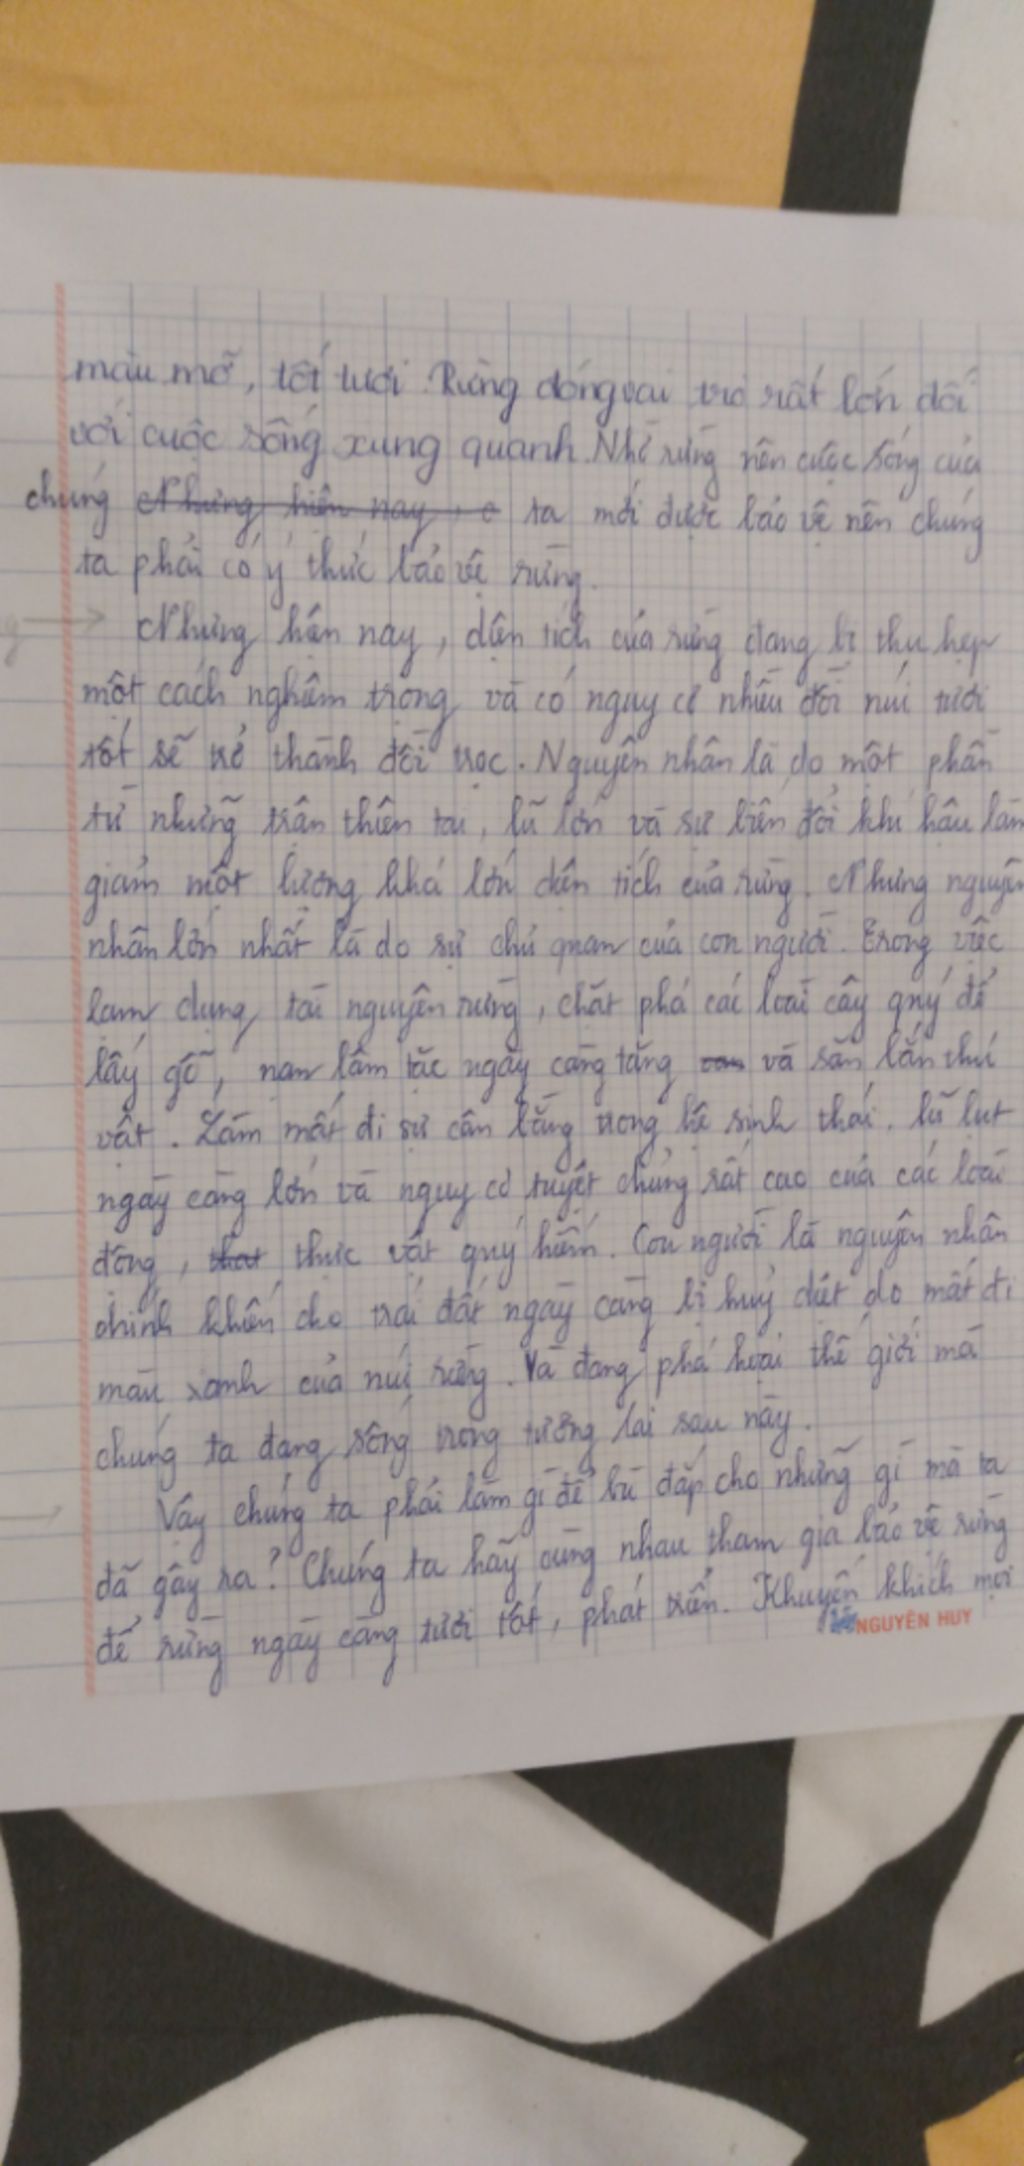 màu mỡ, tốt tươi. Rừng đóng vai trò rất lớn đối
với cuộc sống xung quanh. Nhờ rừng nên cuộc sống của
chúng Nhưng hiện nay, c ta mới được bảo vệ nên chúng
ta phải có ý thức bảo vệ rừng.
Nhưng hiện nay, diện tích của rừng đang bị thu hẹp
một cách nghiêm trọng và có nguy cơ nhiều đồi núi tươi
tốt sẽ trở thành đồi trọc. Nguyên nhân là do một phần
từ những trận thiên tai, lũ lớn và sự biến đổi khí hậu làm
giảm một lượng khá lớn diện tích của rừng. Nhưng nguyên
nhân lớn nhất là do sự chủ quan của con người. Trong việc
lạm dụng tài nguyên rừng, chặt phá các loài cây quý để
lấy gỗ, nạn lâm tặc ngày càng tăng và săn bắn thú
vật. Làm mất đi sự cân bằng trong hệ sinh thái, lũ lụt
ngày càng lớn và nguy cơ tuyệt chủng rất cao của các loài
động, thực vật quý hiếm. Con người là nguyên nhân
chính khiến cho trái đất ngày càng bị huỷ diệt do mất đi
màu xanh của núi rừng. Và đang phá hoại thế giới mà
chúng ta đang sống trong tương lai sau này.
Vậy chúng ta phải làm gì để bù đắp cho những gì mà ta
đã gây ra? Chúng ta hãy cùng nhau tham gia bảo vệ rừng
để rừng ngày càng tươi tốt, phát triển. Khuyến khích mọi
NGUYÊN HUY